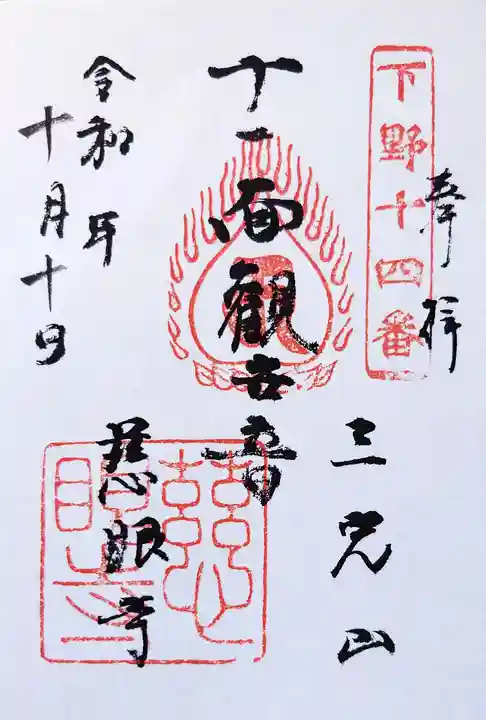 奉拝
下野十四番
三光山
十一面観世音
慈眼寺
令和 年
十月十日